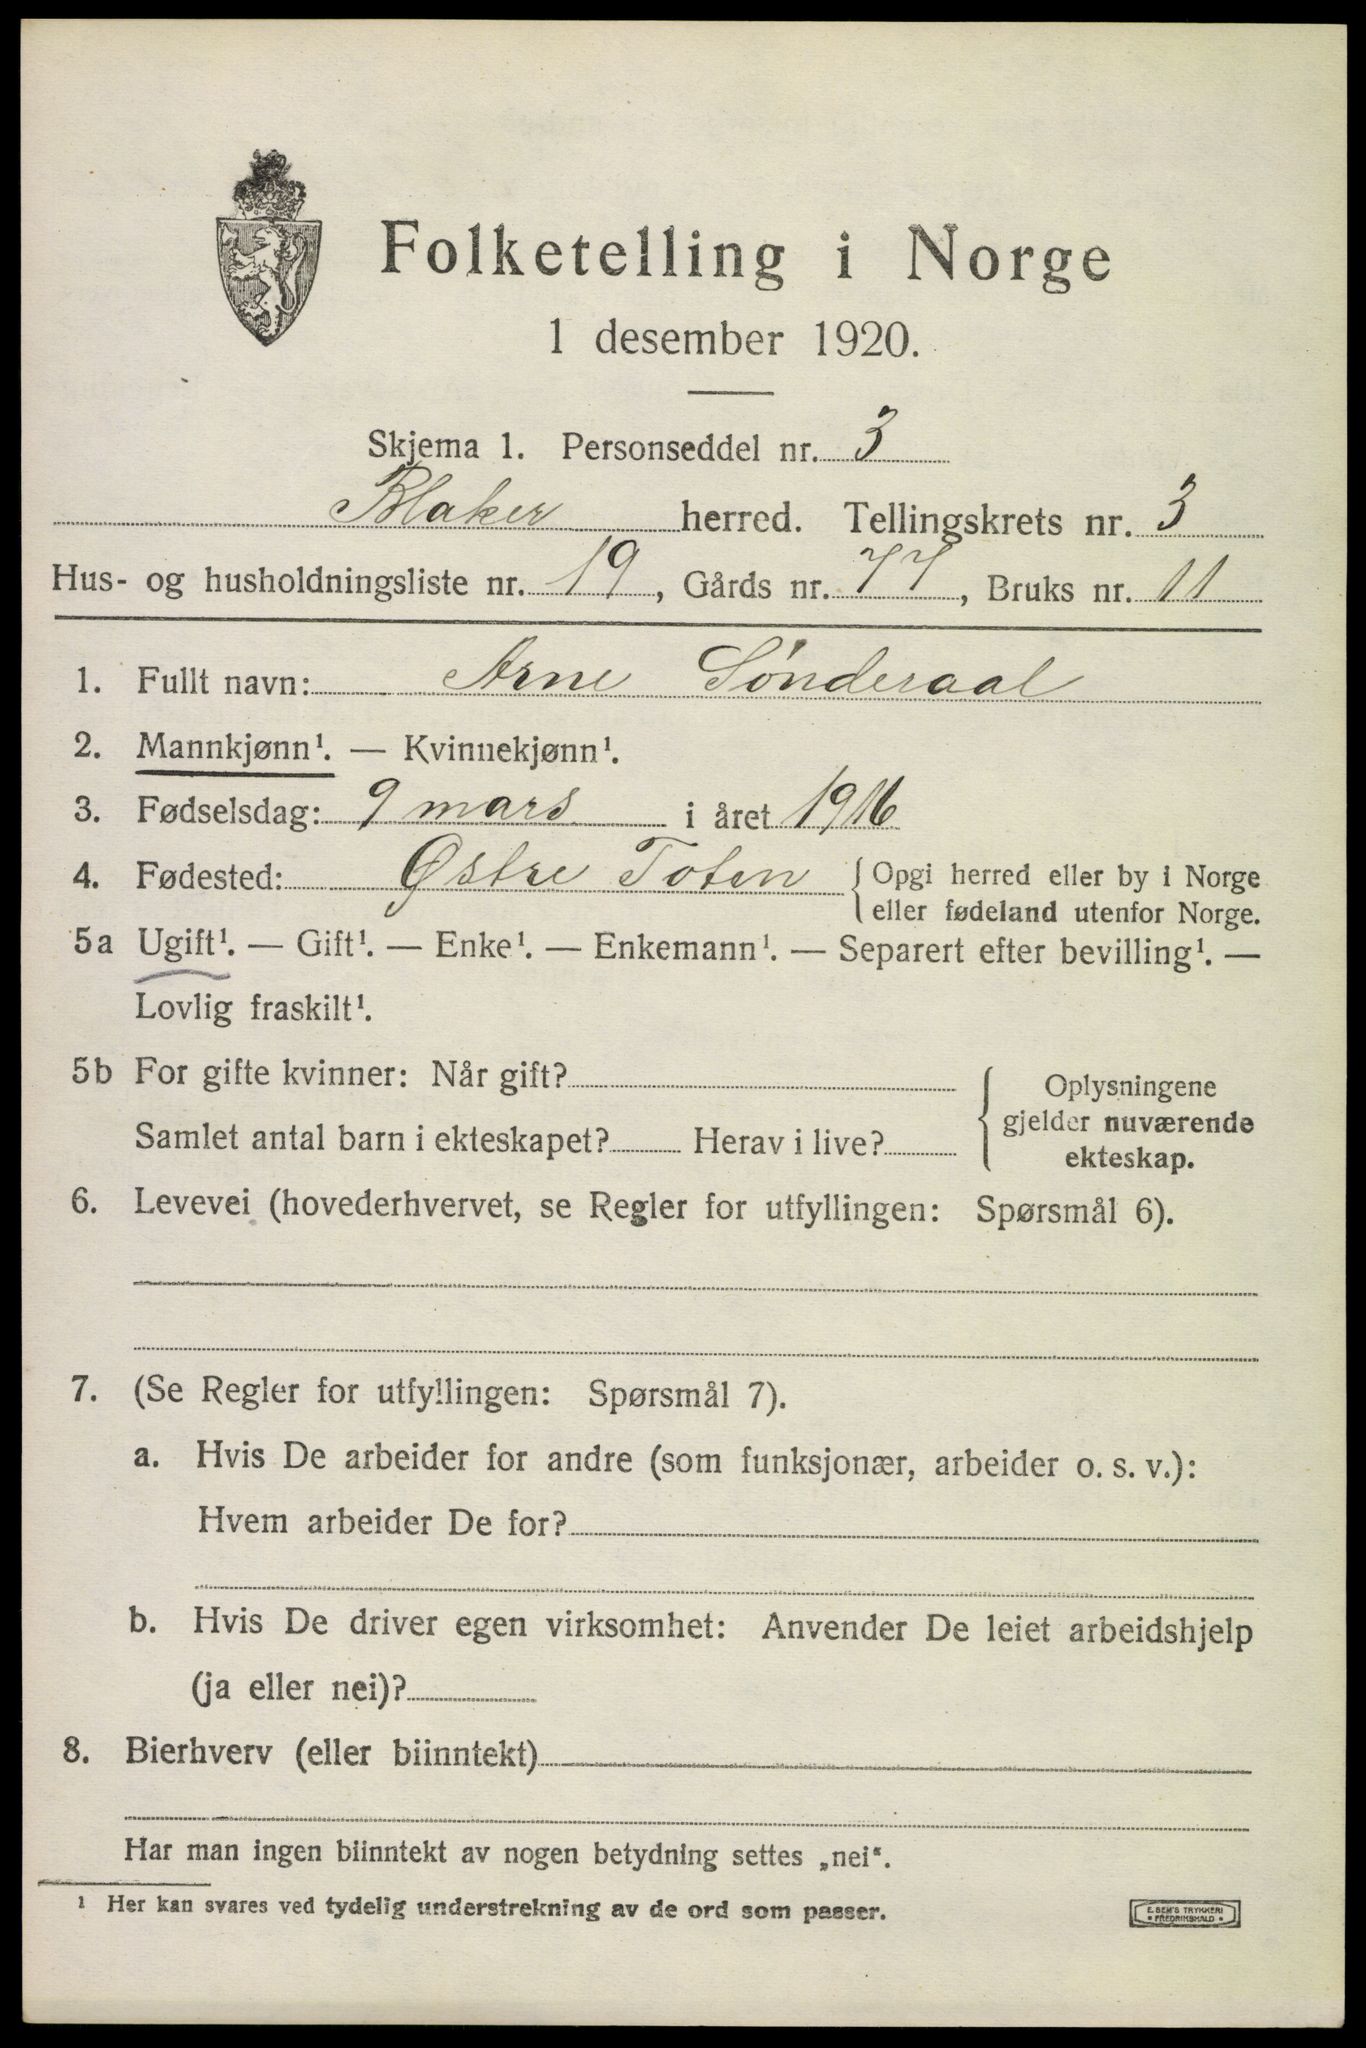 Folketelling i Norge
1 desember 1920.
Skjema 1. Personseddel nr. 3
Blaker herred. Tellingskrets nr. 3
Hus- og husholdningsliste nr. 19, Gårds nr. 77, Bruks nr. 11
1. Fullt navn: Arne Sønderaal
2. Mannkjønn¹. — Kvinnekjønn¹.
3. Fødselsdag: 9 mars i året 1916
4. Fødested: Østre Toten { Opgi herred eller by i Norge
eller fødeland utenfor Norge.
5a Ugift¹. — Gift¹. — Enke¹. — Enkemann¹. — Separert efter bevilling¹. —
Lovlig fraskilt¹.
5b For gifte kvinner: Når gift?
Samlet antal barn i ekteskapet? Herav i live?
{ Oplysningene
gjelder nuværende
ekteskap.
6. Levevei (hovederhvervet, se Regler for utfyllingen: Spørsmål 6).
7. (Se Regler for utfyllingen: Spørsmål 7).
a. Hvis De arbeider for andre (som funksjonær, arbeider o. s. v.):
Hvem arbeider De for?
b. Hvis De driver egen virksomhet: Anvender De leiet arbeidshjelp
(ja eller nei)?
8. Bierhverv (eller biinntekt)
Har man ingen biinntekt av nogen betydning settes „nei“.
¹ Her kan svares ved tydelig understrekning av de ord som passer.
E. SEM'S TRYKKERI
* FREDRIKSHALD *